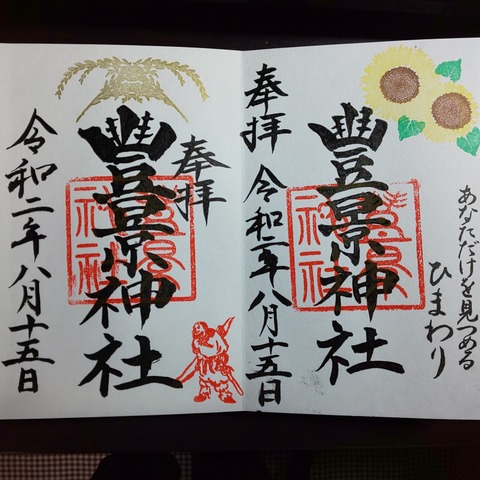 あなただけを見つめる
ひまわり
奉拝
豐景神社
令和二年八月十五日
奉拝
豐景神社
令和二年八月十五日